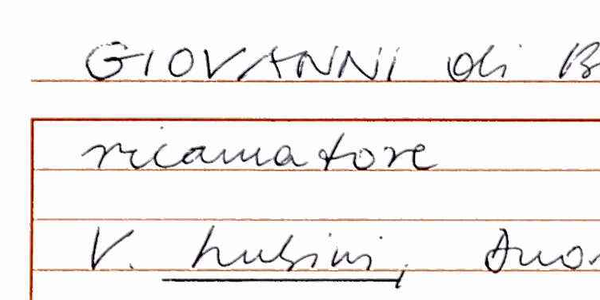 GIOVANNI di B
ricamatore
V. Lubini, Ano